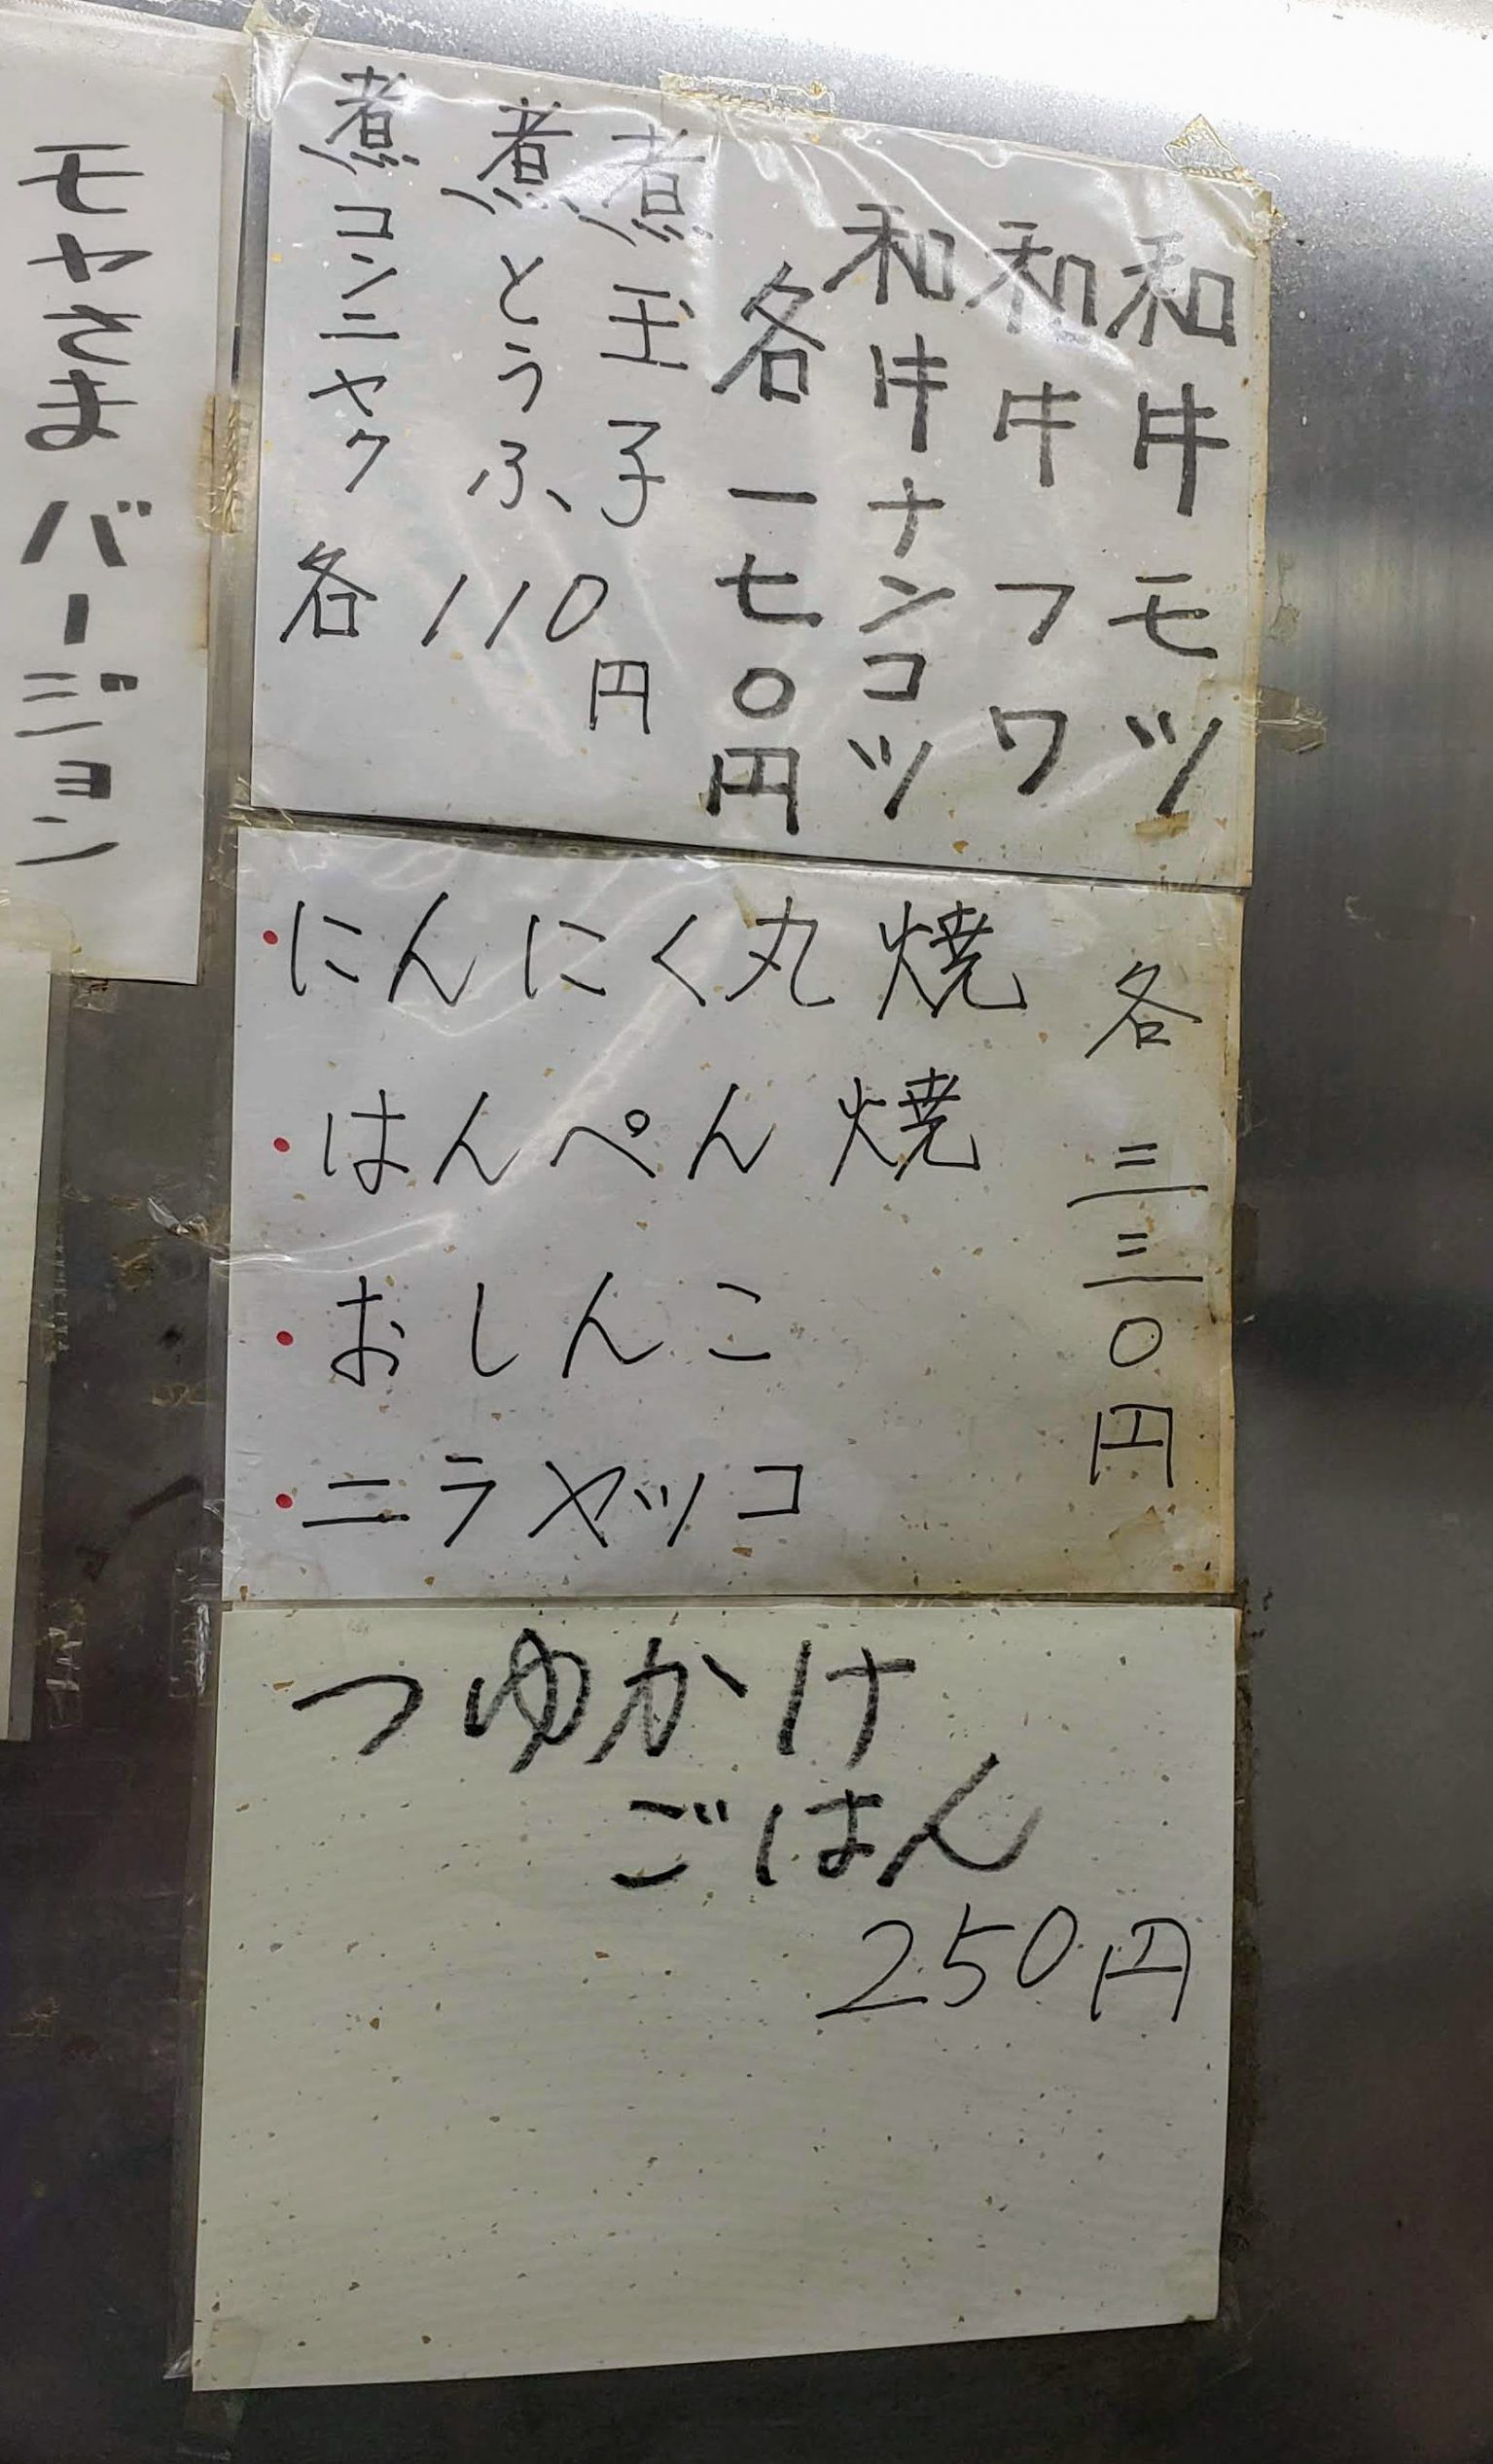 和牛モツ
和牛フワ
和牛ナンコツ
各一七〇円
煮玉子
煮とうふ
煮コンニャク
各110円
・にんにく丸焼
・はんぺん焼
・おしんこ
・ニラヤッコ
各三三〇円
つゆかけ
ごはん
250円
モヤさまバージョン